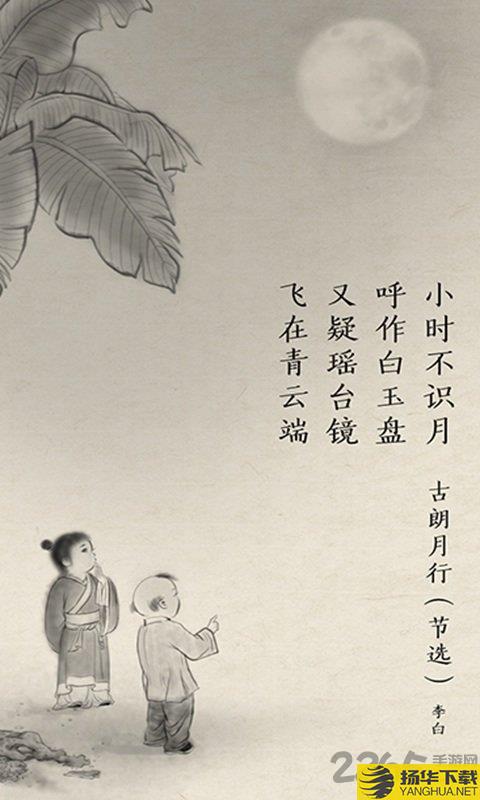 小时不识月
呼作白玉盘
又疑瑶台镜
飞在青云端
古朗月行(节选)
李白
2265手游网
扬华下载
YANGHUA.NET